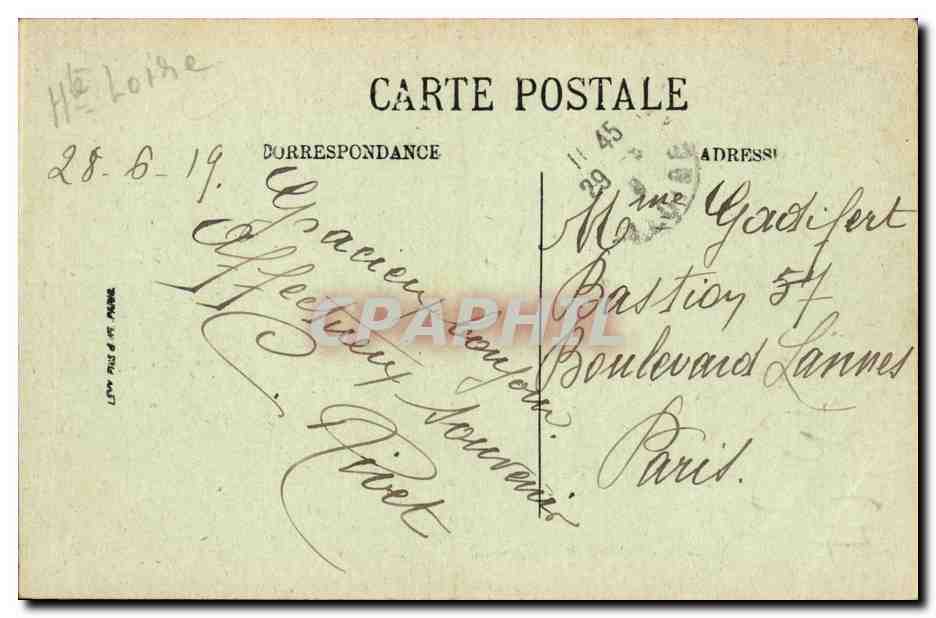 Hte Loire
CARTE POSTALE
CORRESPONDANCE
ADRESSE
11 45
29
28-6-19.
Gracieux bonjour.
Affectueux souvenir
Rivet
Mme Gadifert
Bastion 57
Boulevard Lannes
Paris.
CPAPHIL